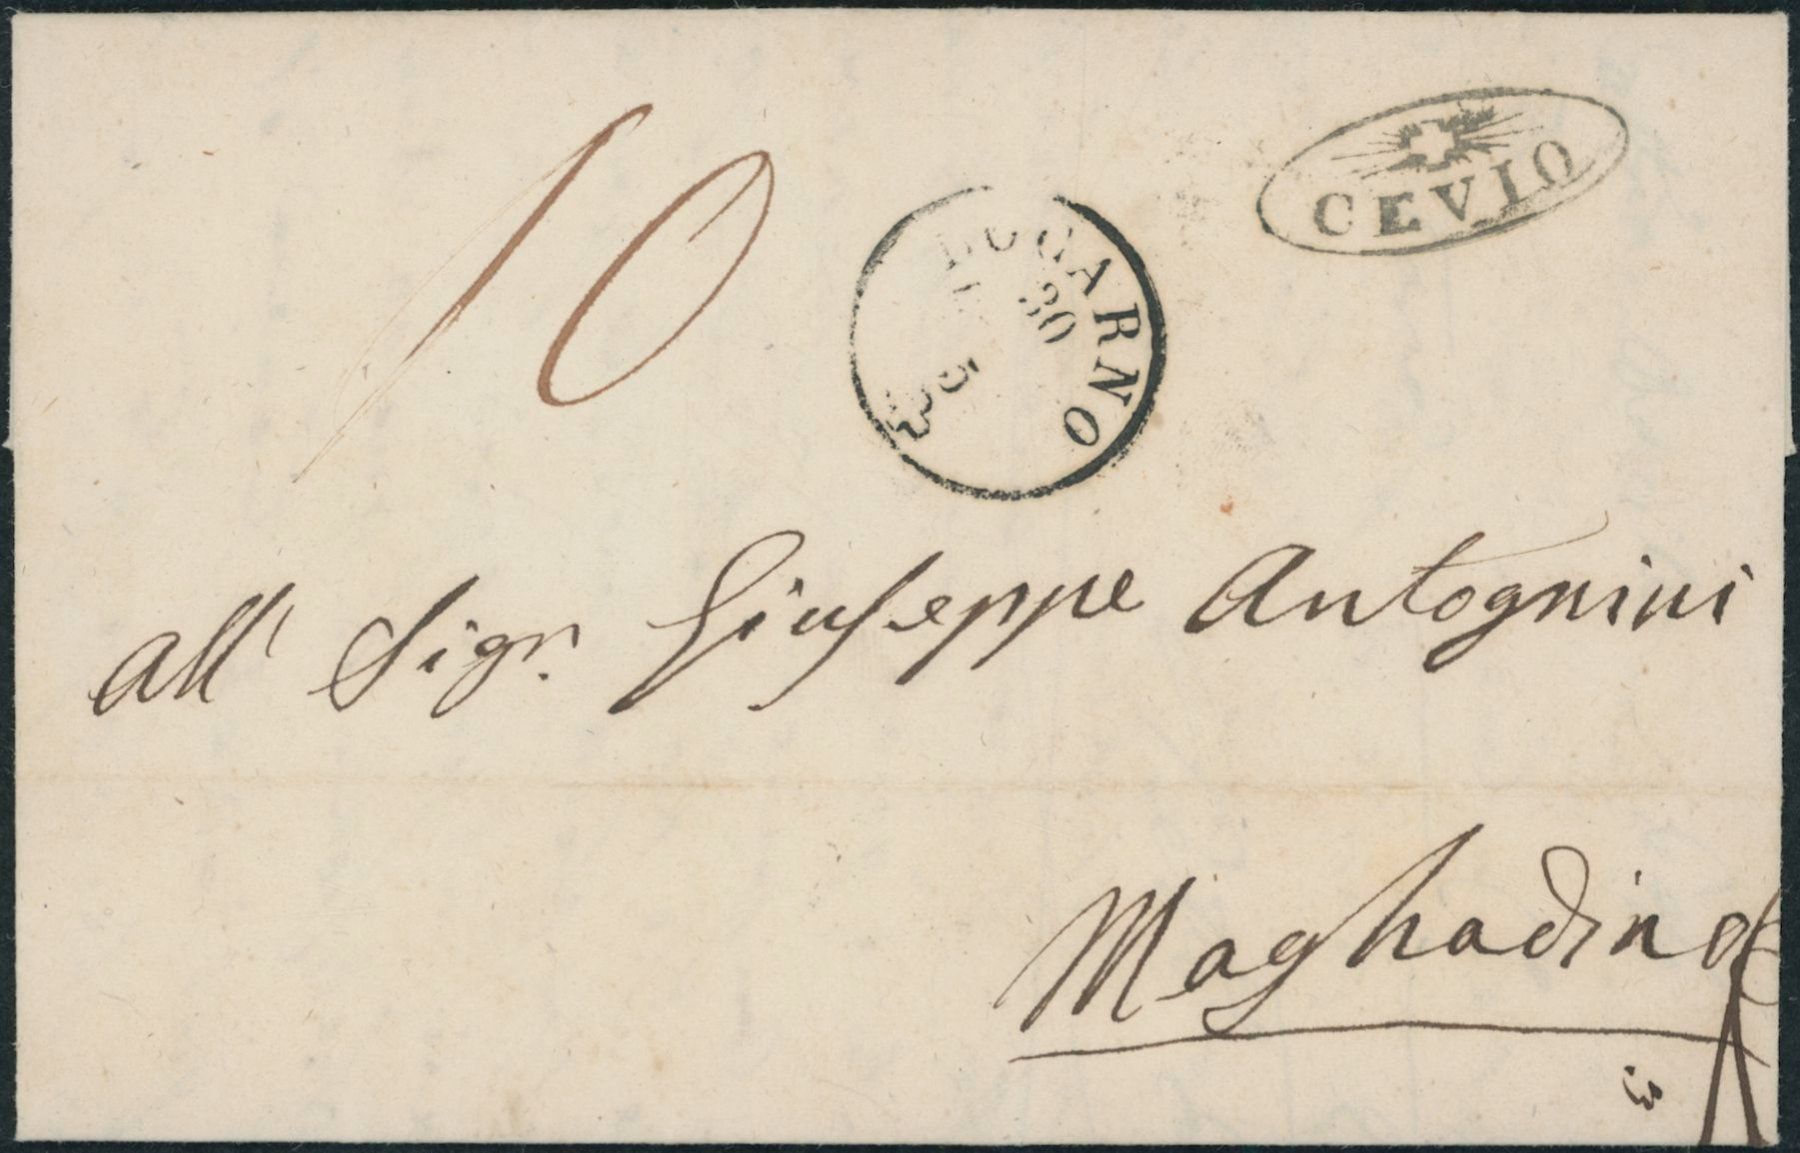 10
CEVIO
LOCARNO
30
5
all' Sigr. Giuseppe Antognini
Maghadino